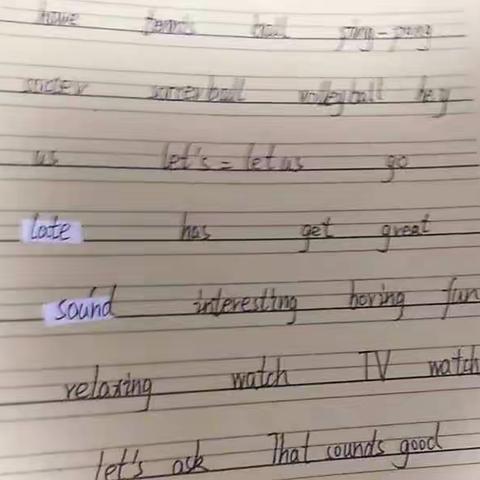 have tennis ball ping-pong
soccer soccer ball volleyball hey
us let's = let us go
late has get great
sound interestting boring fun
relaxing watch TV watch
let's ask That sounds good